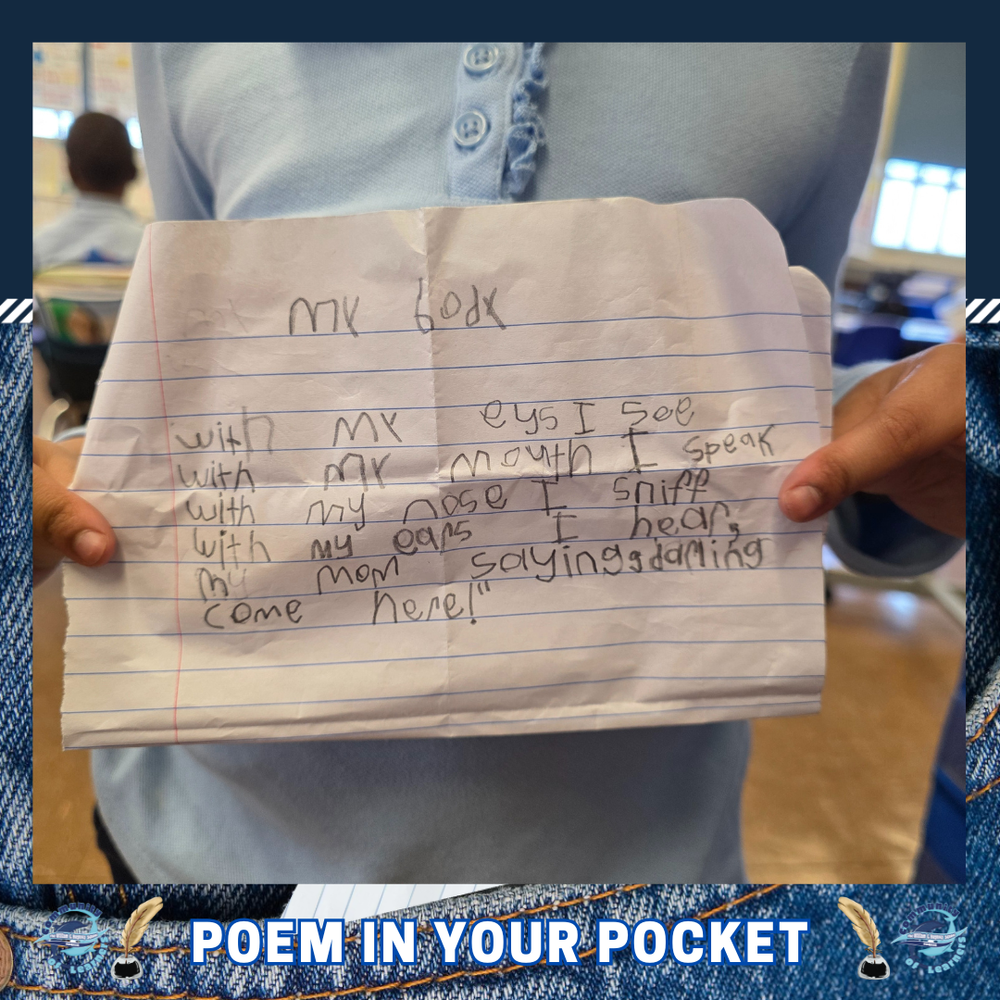 my body
with my eys I see
with my mouth I speak
with my nose I sniff
with my ears I hear,
my mom saying,,darling
come here!"
POEM IN YOUR POCKET